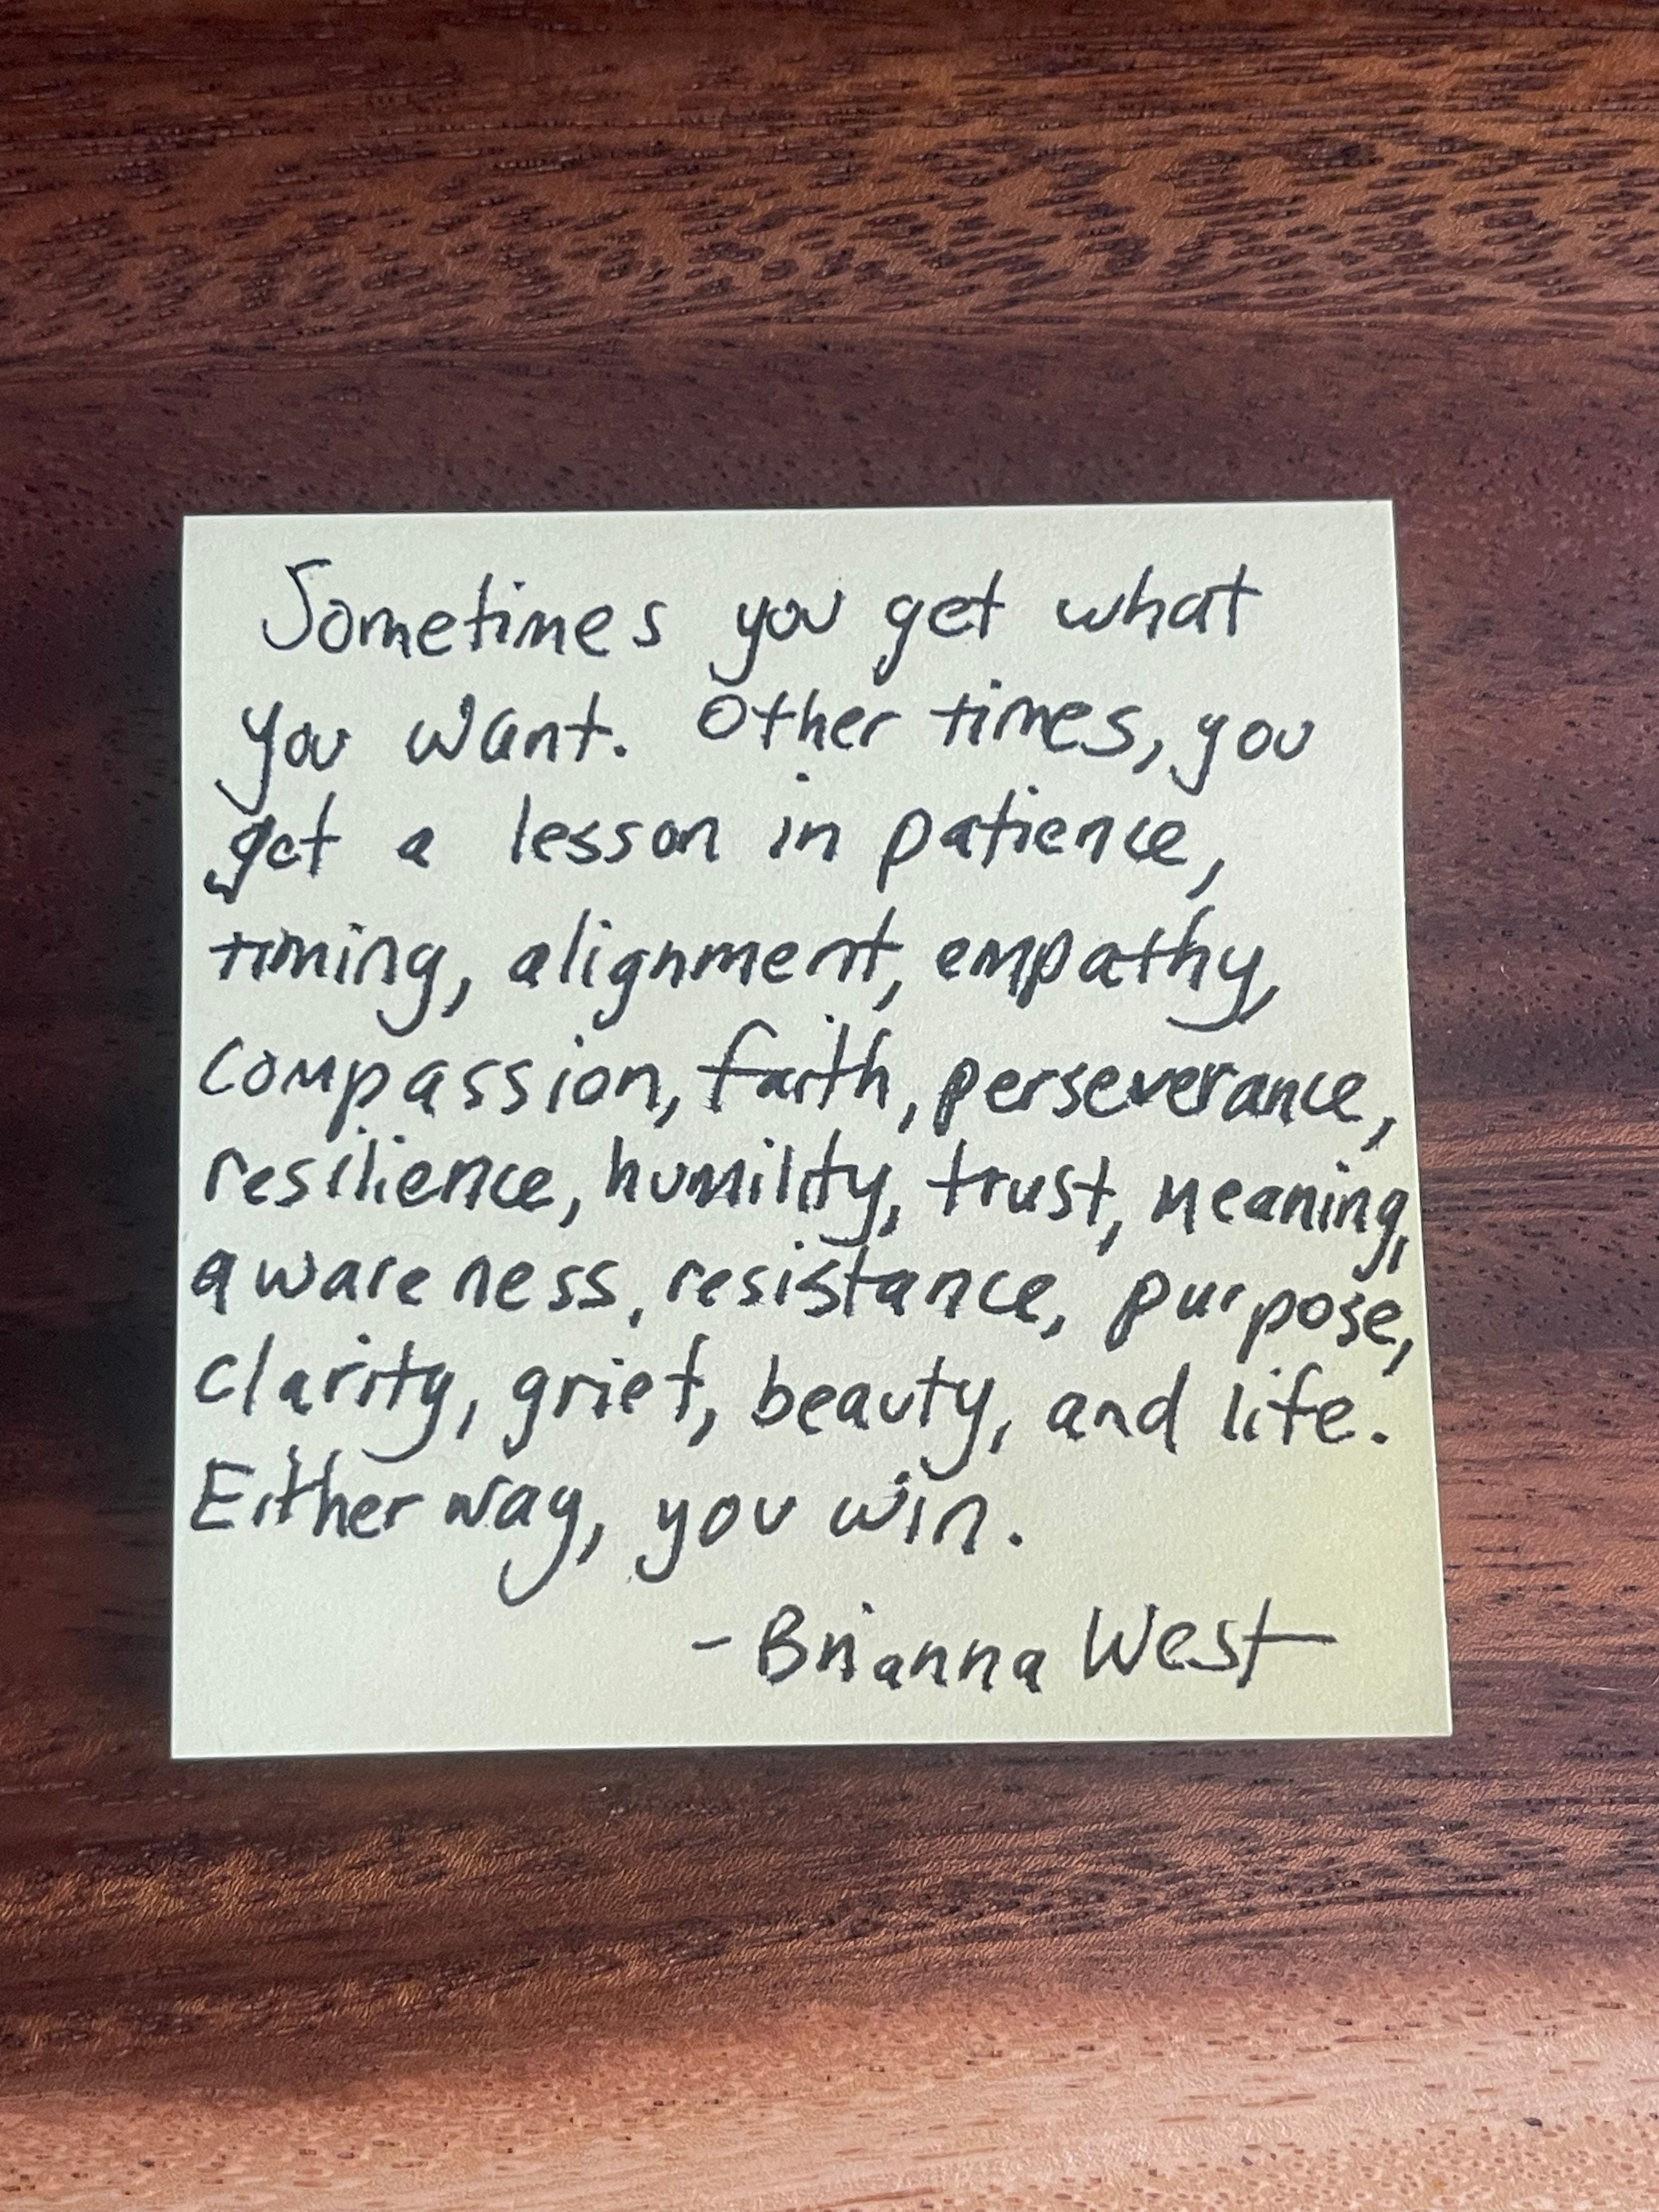 Sometimes you get what
you want. Other times, you
get a lesson in patience,
timing, alignment, empathy,
compassion, faith, perseverance,
resilience, humility, trust, meaning,
awareness, resistance, purpose,
clarity, grief, beauty, and life.
Either way, you win.
- Brianna West